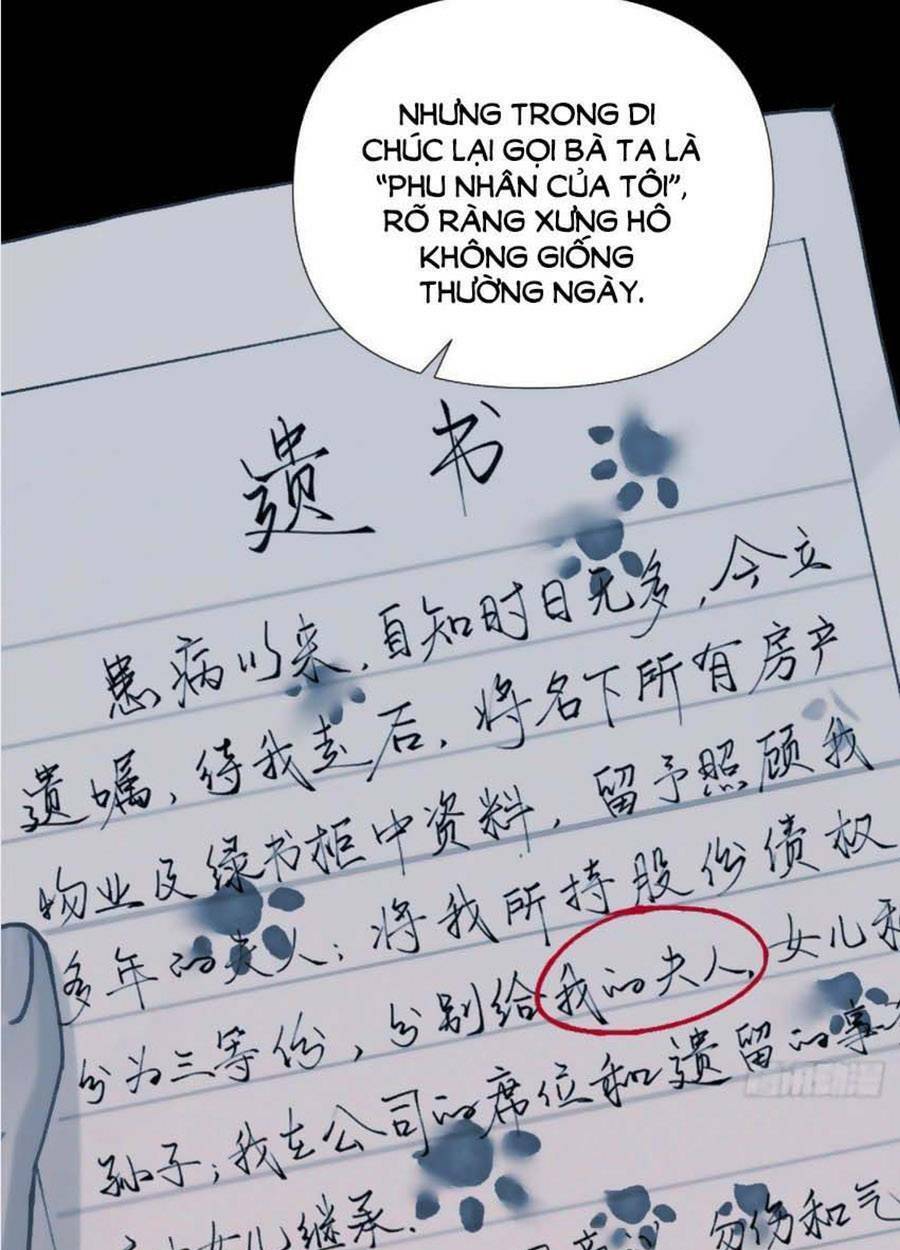 NHƯNG TRONG DI
CHÚC LẠI GỌI BÀ TA LÀ
“PHU NHÂN CỦA TÔI”,
RÕ RÀNG XƯNG HÔ
KHÔNG GIỐNG
THƯỜNG NGÀY.
遗书
患病以来,自知时日无多,今立
遗嘱,待我走后,将名下所有房产
物业及绿书柜中资料,留予照顾我
多年的夫人;将我所持股份债权
分为三等份,分别给我的夫人、女儿和
孙子;我在公司的席位和遗留的事
女儿继承.
勿伤和气